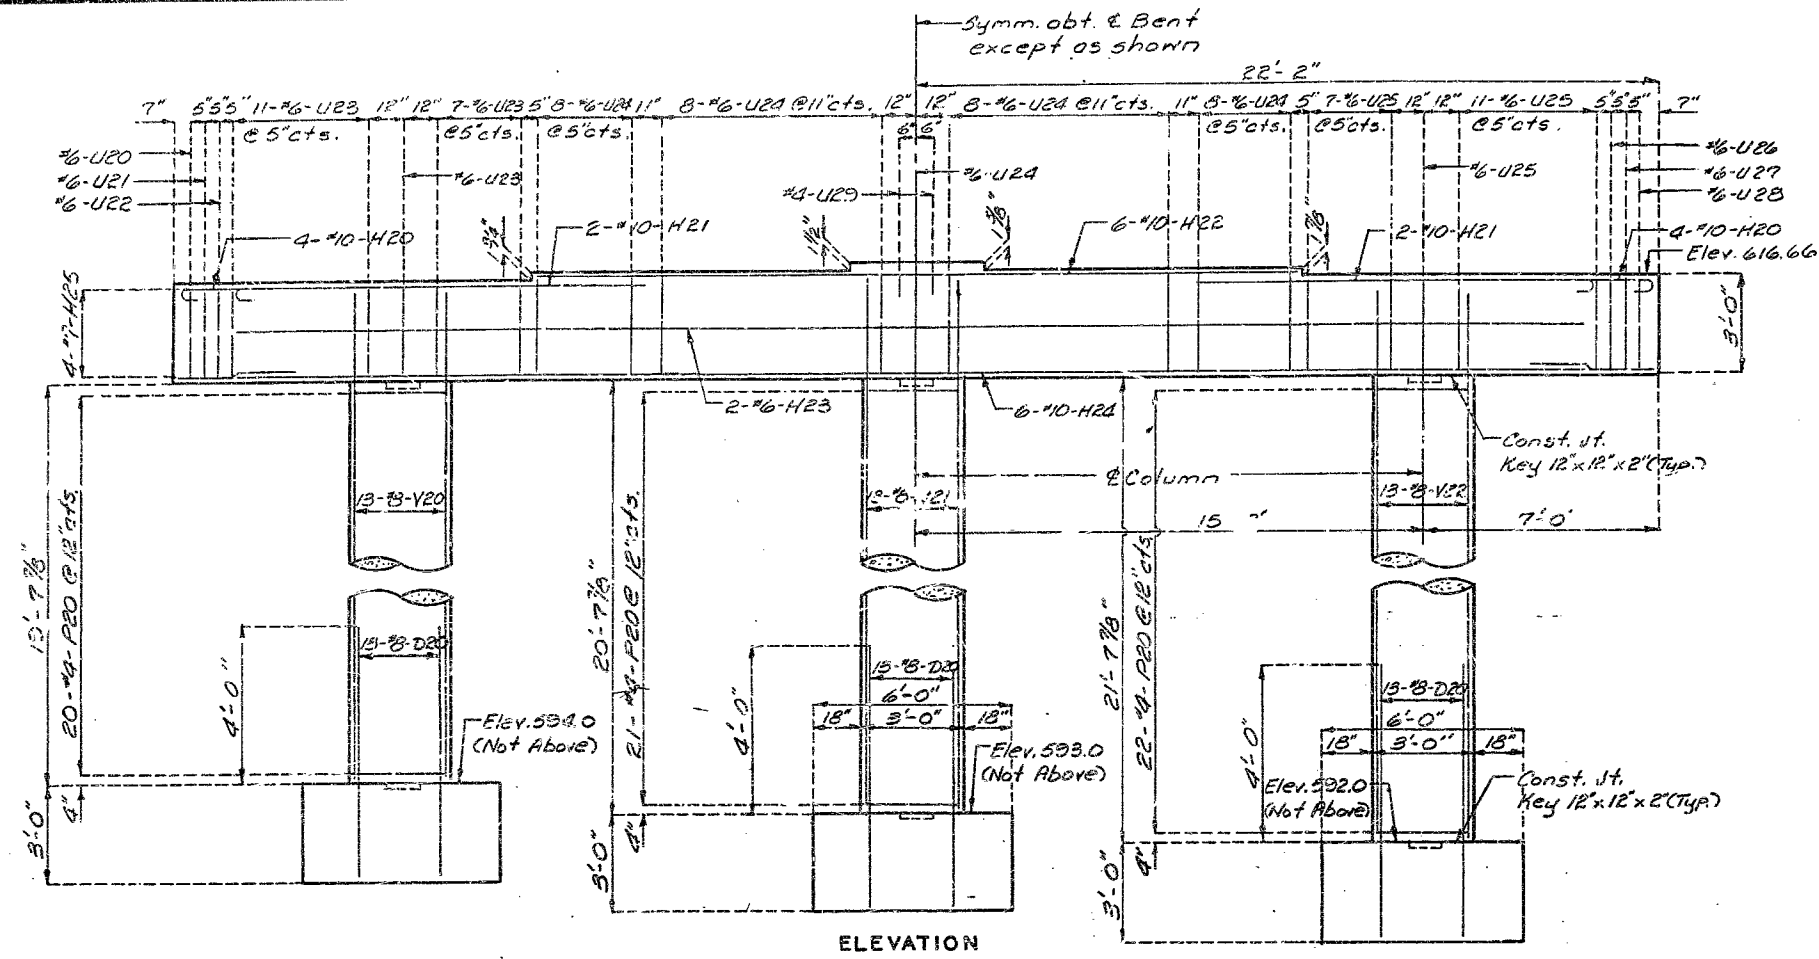 Symm. abt. ℄ Bent
except as shown
22'-2"
7" 5" 5" 5" 11-#6-U23 12" 12" 7-#6-U23 5" 8-#6-U24 11" 8-#6-U24 @ 11" cts. 12" 12" 8-#6-U24 @ 11" cts. 11" 8-#6-U24 5" 7-#6-U25 12" 12" 11-#6-U25 5" 5" 5" 7"
@ 5" cts. @ 5" cts. @ 5" cts. 6" 6" @ 5" cts. @ 5" cts. @ 5" cts.
#6-U20
#6-U21
#6-U22
#6-U23
#6-U24
#4-U29
#6-U25
#6-U26
#6-U27
#6-U28
4-#10-H20
1 3/4"
2-#10-H21
1 1/2"
1 3/8"
6-#10-H22
1 7/8"
2-#10-H21
4-#10-H20
Elev. 616.66
4-#7-H25
3'-0"
2-#6-H23
6-#10-H24
Const. Jt.
Key 12"x12"x2" (Typ.)
℄ Column
13-#8-V20
13-#8-V22
15
7'-0"
19'-7 7/8"
20-#4-P20 @ 12" cts.
20'-7 7/8"
21-#4-P20 @ 12" cts.
21'-7 7/8"
22-#4-P20 @ 12" cts.
13-#8-D20
4'-0"
Elev. 594.0
(Not Above)
3'-0"
4"
13-#8-D20
6'-0"
18" 3'-0" 18"
4'-0"
Elev. 593.0
(Not Above)
3'-0"
4"
13-#8-D20
6'-0"
18" 3'-0" 18"
4'-0"
Elev. 592.0
(Not Above)
Const. Jt.
Key 12"x12"x2" (Typ.)
3'-0"
4"
ELEVATION